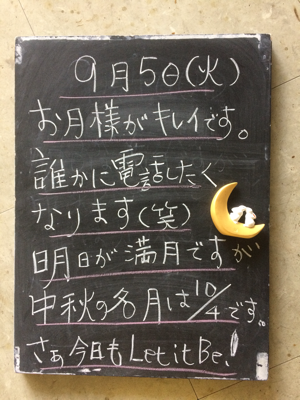 9月5日(火)
お月様がキレイです。
誰かに電話したく
なります(笑)
明日が満月ですがい
中秋の名月は10/4です。
さぁ今日もLet it Be!